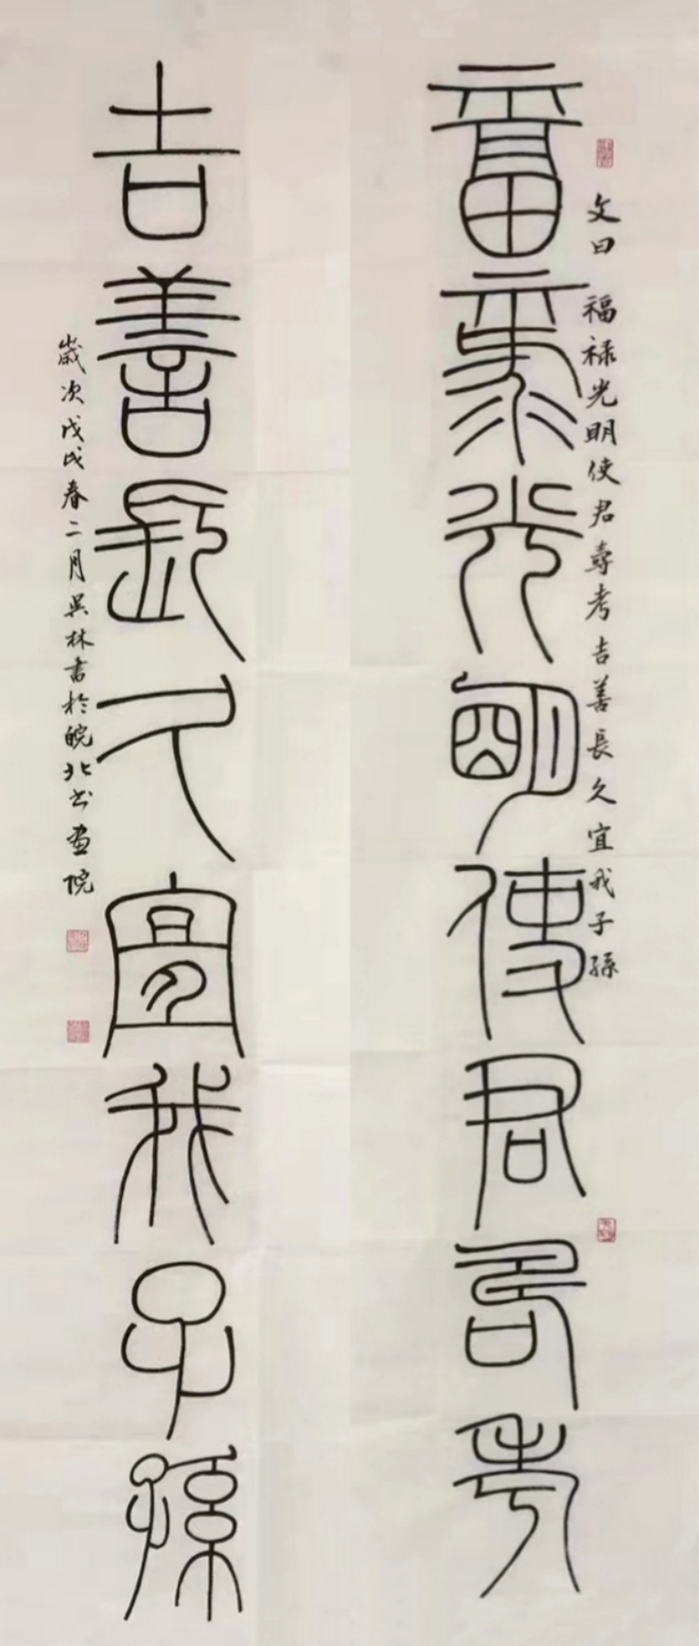 福祿光明使君壽考
文曰 福禄光明使君寿考吉善長久宜我子孫
吉善長久宜我子孫
歲次戊戌春二月吴林書於皖北书画院